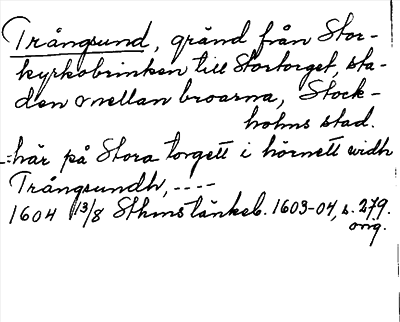 Trångsund, gränd från Stor-
kyrkobrinken till Stortorget, sta-
den mellan broarna, Stock-
holms stad.
-:här på Stora torgett i hörnett widh
Trångsundh, ----
1604 13/8 Sthms tänkeb. 1603-04, s. 279.
orig.